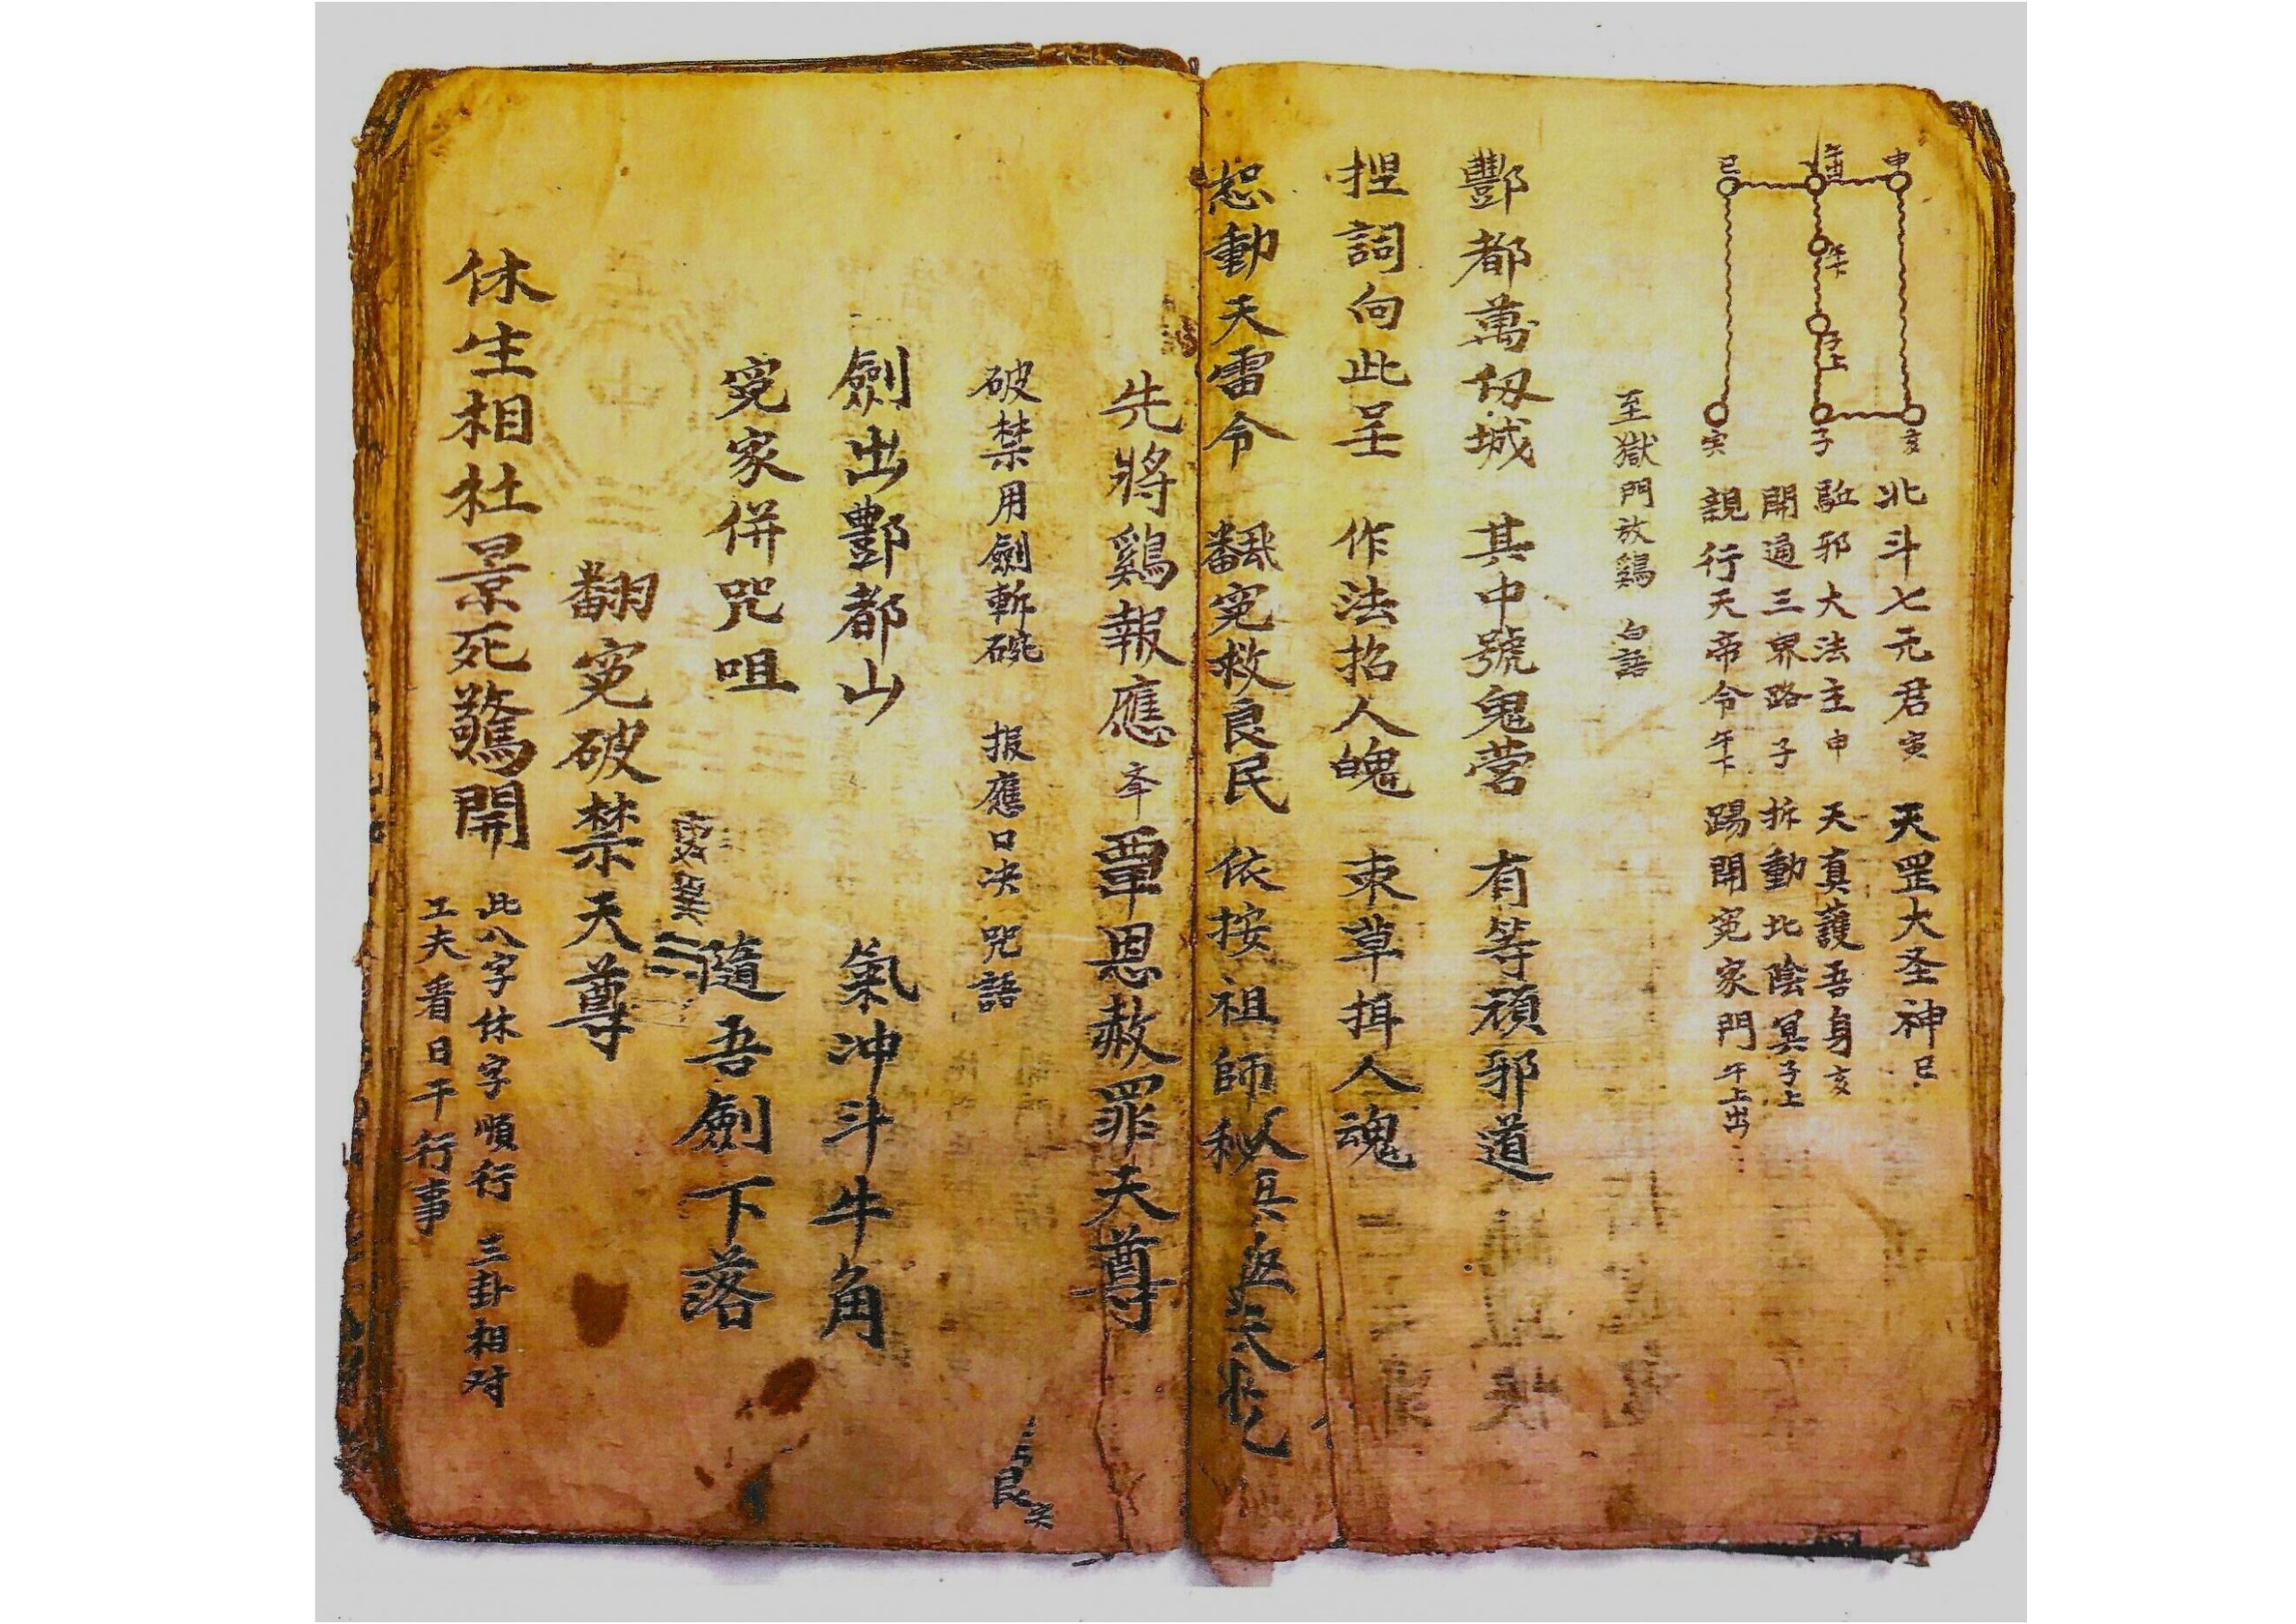 申
午
酉
巳
午
下
子
上
亥
子
寅
北斗七元君寅 天罡大圣神巳
駈邪大法主申 天真護吾身亥
開通三界路子 拆動北陰冥子上
親行天帝令午下 踢開寃家門午上出
至獄門放鷄 白語
酆都萬仭城 其中號鬼营 有等頑邪道
揑詞向此呈 作法招人魄 束草揖人魂
恕動天雷令 飜寃救良民 依按祖師秘
先將鷄報應 夲覃恩赦罪天尊
破禁用劍斬碗 报應口决 咒語
劍出酆都山 氣冲斗牛角
寃家併咒咀 隨吾劍下落
翻寃破禁天尊
休生相杜景死驚開 此八字休字順行 三卦相对
工夫看日干行事
艮